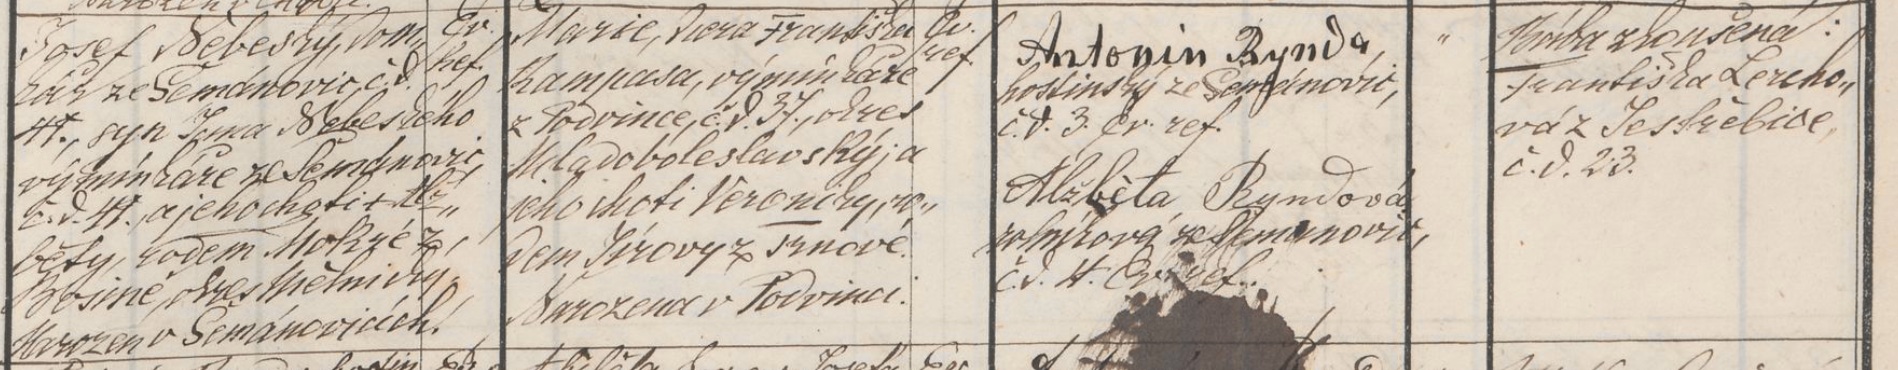 Josef Nebeský, dom„
kář ze Šemanovic, č.d.
4., syn Jana Nebeského
výminkáře ze Šemanovic,
č.d. 4., a jeho choti † Alž„
běty, rodem Mokré z
okres Mělnický.
Narozen v Šemánovicích.
Ev.
ref.
Marie, dcera Františka
Kampasa, výminkáře
z Podvince, č.d. 37., okres
Mladoboleslavský, a
jeho choti Veroniky, ro„
dem Jírovy z Trnové.
Narozena v Podvinci.
Ev.
ref.
Antonín Rynda,
hostinský ze Šemanovic,
č.d. 3. Ev. ref.
Alžběta Ryndová
rolníková ze Šemanovic,
č.d. 4. Ev. ref.
"
Bába zkoušená:
Františka Lercho„
vá z Jestřebice,
č.d. 23.